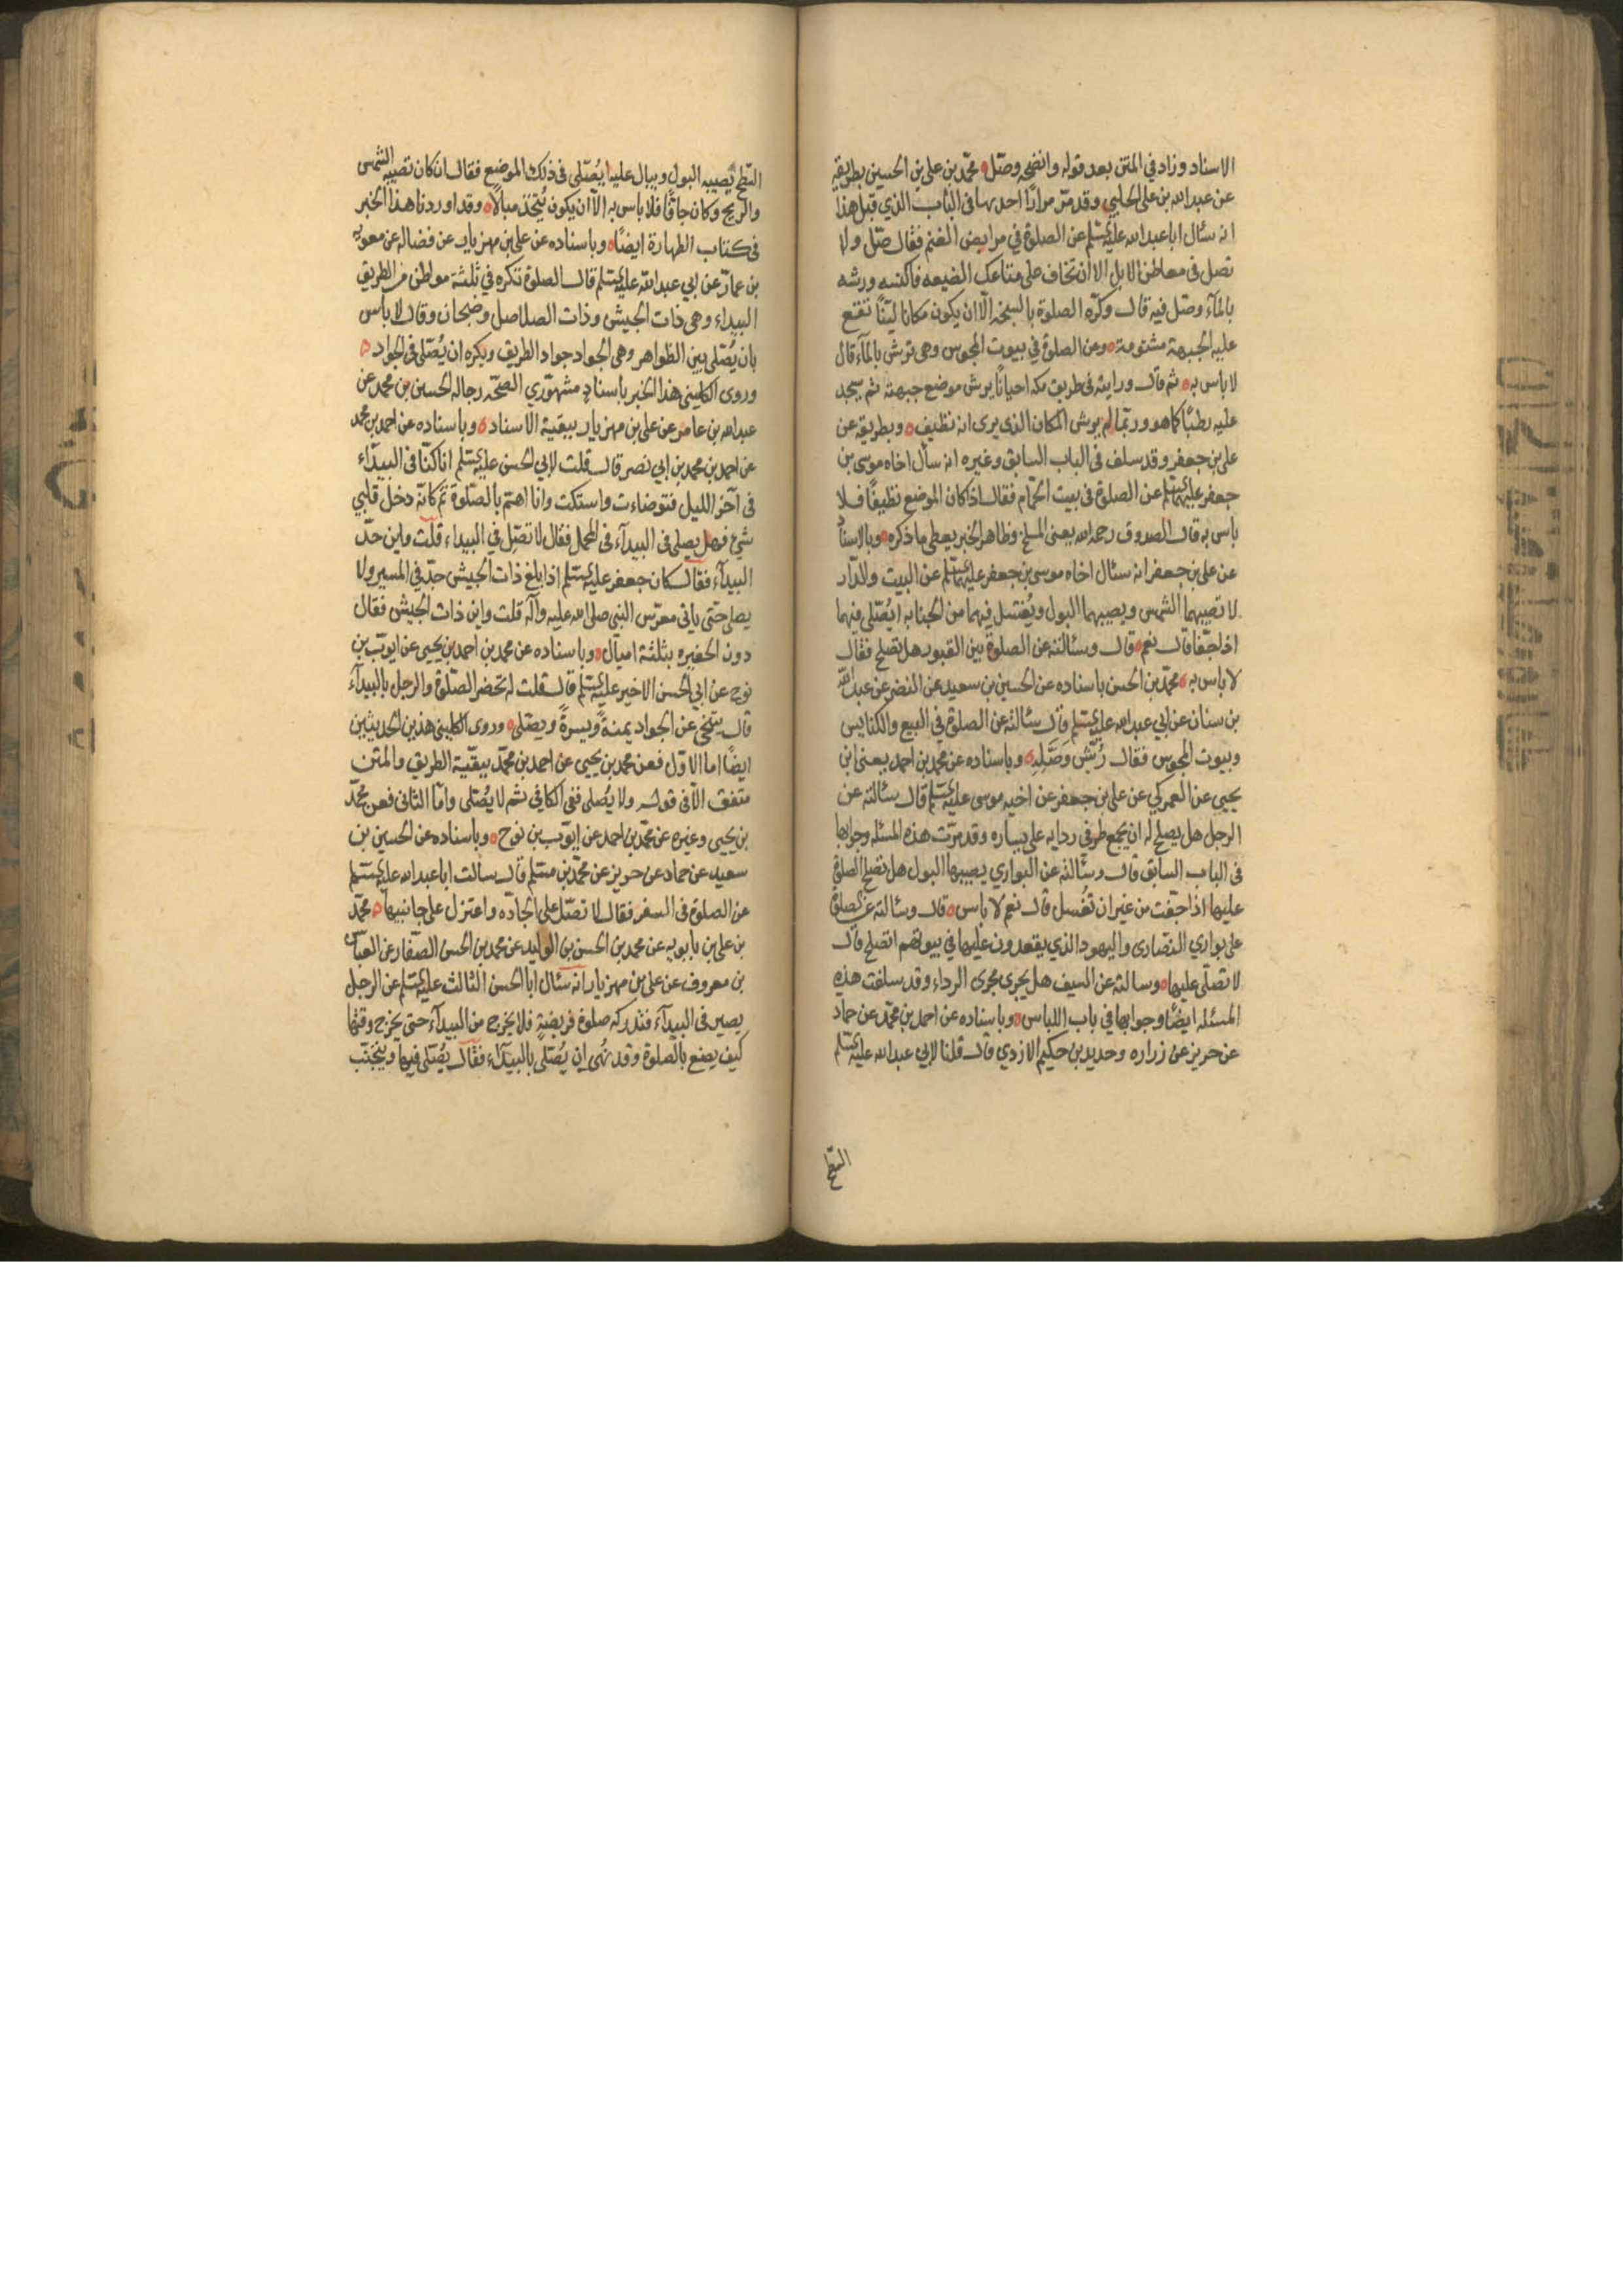 الاسناد وزاد في المتن بعد قوله وانضحه وصلّ ه محمّد بن علي بن الحسين بطريقه
عن عبدالله بن علي الحلبي وقد مرّ مرارًا احدها في الباب الذي قبل هذا
انه سئال اباعبدالله عليه السلم عن الصلوة في مرابض الغنم فقال صلّ ولا
تصل في معاطن الابل الا ان تخاف على متاعك الضيعه فاكنسه ورشه
بالمآء وصل فيه قال وكرّه الصلوة بالسبخه الّا ان يكون مكانا ليّنًا تقع
عليه الجبهة مستوية ه وعن الصلوة في بيوت المجوس وهي ترش بالمآء قال
لا باس به ه ثم قال ورايته في طريق مكه احيانًا يرش موضع جبهته ثم يسجد
عليه رطبًا كما هو وربّما لم يرش المكان الذي يرى انه نظيف ه وبطريقه عن
علي بن جعفر وقد سلف في الباب السابق وغيره انه سأل اخاه موسى بن
جعفر عليهما السلم عن الصلوة في بيت الحمّام فقال اذا كان الموضع نظيفًا فلا
باس به قال الصدوق رحمه الله يعني المسلخ وظاهر الخبر يعطي ما ذكره ه وبالاسناد
عن علي بن جعفر انه سئال اخاه موسى بن جعفر عليهما السلم عن البيت والدّار
لا تصيبهما الشمس ويصيبهما البول ويُغتسل فيهما من الجنابه ايُصلّى فيهما
اذا جفّا قال نعم ه قال وسئالته عن الصلوة بين القبور هل تصلح فقال
لا باس به ه محمّد بن الحسن باسناده عن الحسين بن سعيد عن النضر عن عبدالله
بن سنان عن ابي عبدالله عليه السلم قال سئالته عن الصلوة في البيع والكنايس
وبيوت المجوس فقال رُشّ وَصَلِّ ه وباسناده عن محمّد بن احمد يعني ابن
يحيى عن العمركي عن علي بن جعفر عن اخيه موسى عليه السلم قال سئالته عن
الرجل هل يصلح له ان يجمع طرفي ردايه على يساره وقد مرّت هذه المسئله وجوابها
في الباب السابق قال وسئالته عن البواري يصيبها البول هل تصلح الصلوة
عليها اذا جفّت من غير ان تُغسل قال نعم لا باس ه قال وسئالته عن الصلوة
على بواري النصارى واليهود الذي يقعدون عليها في بيوتهم اتصلح قال
لا تصلّى عليها ه وسالته عن السيف هل يجرى مجرى الرداء وقد سلفت هذه
المسئله ايضًا وجوابها في باب اللباس ه وباسناده عن احمد بن محمّد عن حماد
عن حريز عن زراره وحديد بن حكيم الازدي قال قلنا لابي عبدالله عليه السلم
السّطح
السّطح يصيبه البول ويبال عليه ايُصلّى في ذلك الموضع فقال ان كان تصيبه الشمس
والريح وكان جافًّا فلا باس به الّا ان يكون يُتّخذ مبالًا ه وقد اوردنا هذا الخبر
في كتاب الطهارة ايضًا ه وباسناده عن علي بن مهزيار عن فضاله عن معويه
بن عمّار عن ابي عبدالله عليه السلم قال الصلوة تكره في ثلثة مواطن من الطريق
البيداء وهي ذات الجيش وذات الصلاصل وضجنان وقال لا بأس
بان يُصلى بين الظواهر وهي الجواد جواد الطريق ويكره ان يُصلى في الجواد ه
وروى الكليني هذا الخبر باسناد مشهوري الصحّه رجاله الحسين بن محمد عن
عبدالله بن عامر عن علي بن مهزيار ببقية الاسناد ه وباسناده عن احمد بن محمد
عن احمد بن محمد بن ابي نصر قال قلت لابي الحسن عليه السلم انا كنّا في البيدآء
في آخر الليل فتوضاءت واستكت وانا اهتم بالصلوة ثم كانّه دخل قلبي
شيء فهل يصلى في البيدآء في المحمل فقال لا تصلّ في البيداء قلت واين حدّ
البيدآء فقال كان جعفر عليه السلم اذا بلغ ذات الجيش جدّ في المسير ولا
يصلي حتّى ياتي معرّس النبي صلى الله عليه وآله قلت واين ذات الجيش فقال
دون الحفيره بثلثة اميال ه وباسناده عن محمد بن احمد بن يحيى عن ايوّب بن
نوح عن ابي الحسن الاخير عليه السلم قال قلت له تحضر الصّلوة والرجل بالبيدآء
قال يتنحّى عن الجواد يمنةً ويسرةً ويصلى ه وروى الكليني هذين الحديثين
ايضًا اما الاوّل فعن محمد بن يحيى عن احمد بن محمّد ببقيّة الطريق والمتن
متفق الّا في قوله ولا يُصلى ففي الكافي ثم لا يُصلى وامّا الثاني فعن محمّد
بن يحيى وغيره عن محمّد بن احمد عن ايوّب بن نوح ه وباسناده عن الحسين بن
سعيد عن حماد عن حريز عن محمّد بن مسلم قال سالت اباعبدالله عليه السلم
عن الصلوة في السفر فقال لا تصلّ على الجادّه واعتزل على جانبيها ه محمّد
بن علي بن بابويه عن محمد بن الحسن بن الوليد عن محمد بن الحسن الصفّار عن العباس
بن معروف عن علي بن مهزيار انه سئال ابا الحسن الثالث عليه السلم عن الرجل
يصير في البيدآء فتدركه صلوة فريضة فلا يخرج من البيدآء حتى يخرج وقتها
كيف يصنع بالصلوة وقد نُهى ان يُصلّى بالبيدآء فقال يُصلى فيها ويتجنّب